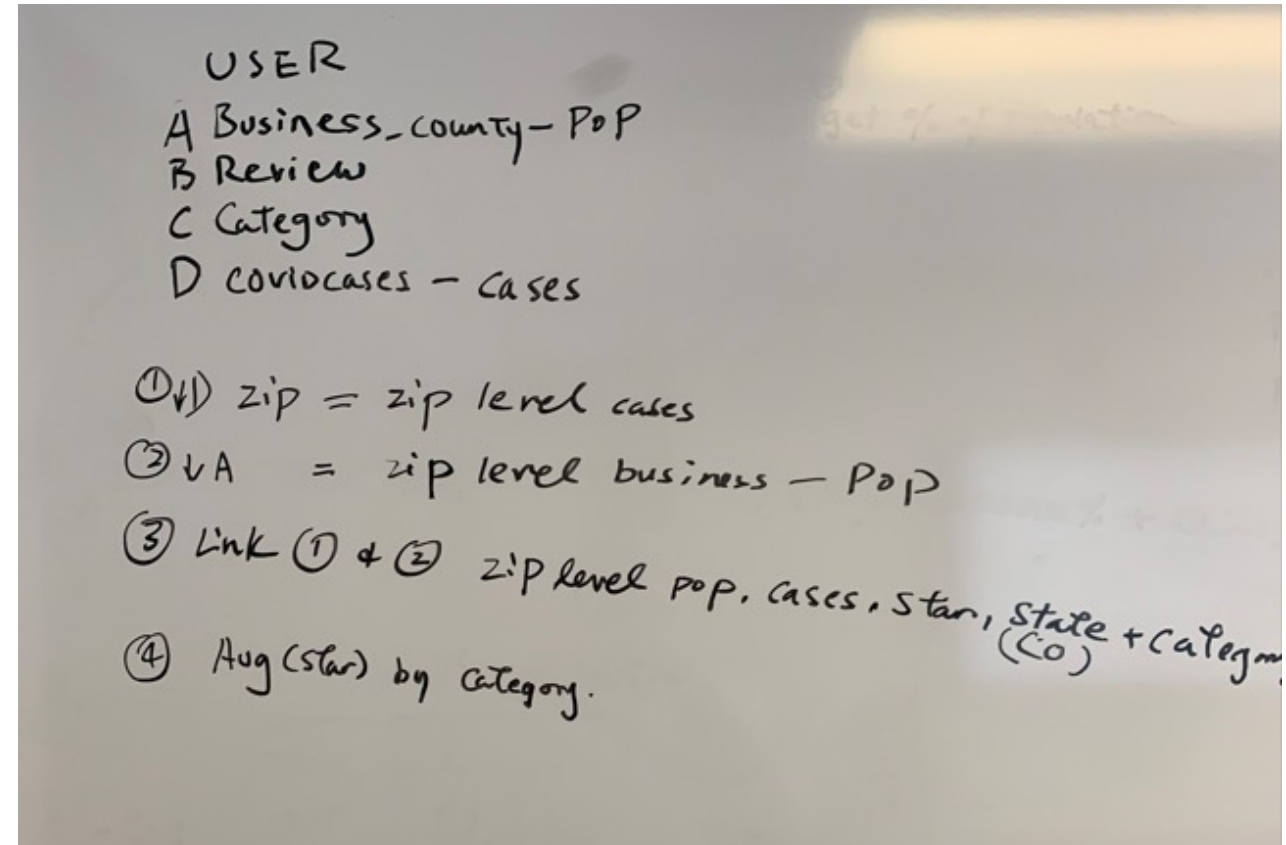 USER
A Business_county-POP
B Review
C Category
D COVIDcases - cases
①↓D zip = zip level cases
②↓A = zip level business - Pop
③ Link ① & ② zip level pop, cases, star, state + category
(CO)
④ Avg (star) by category.